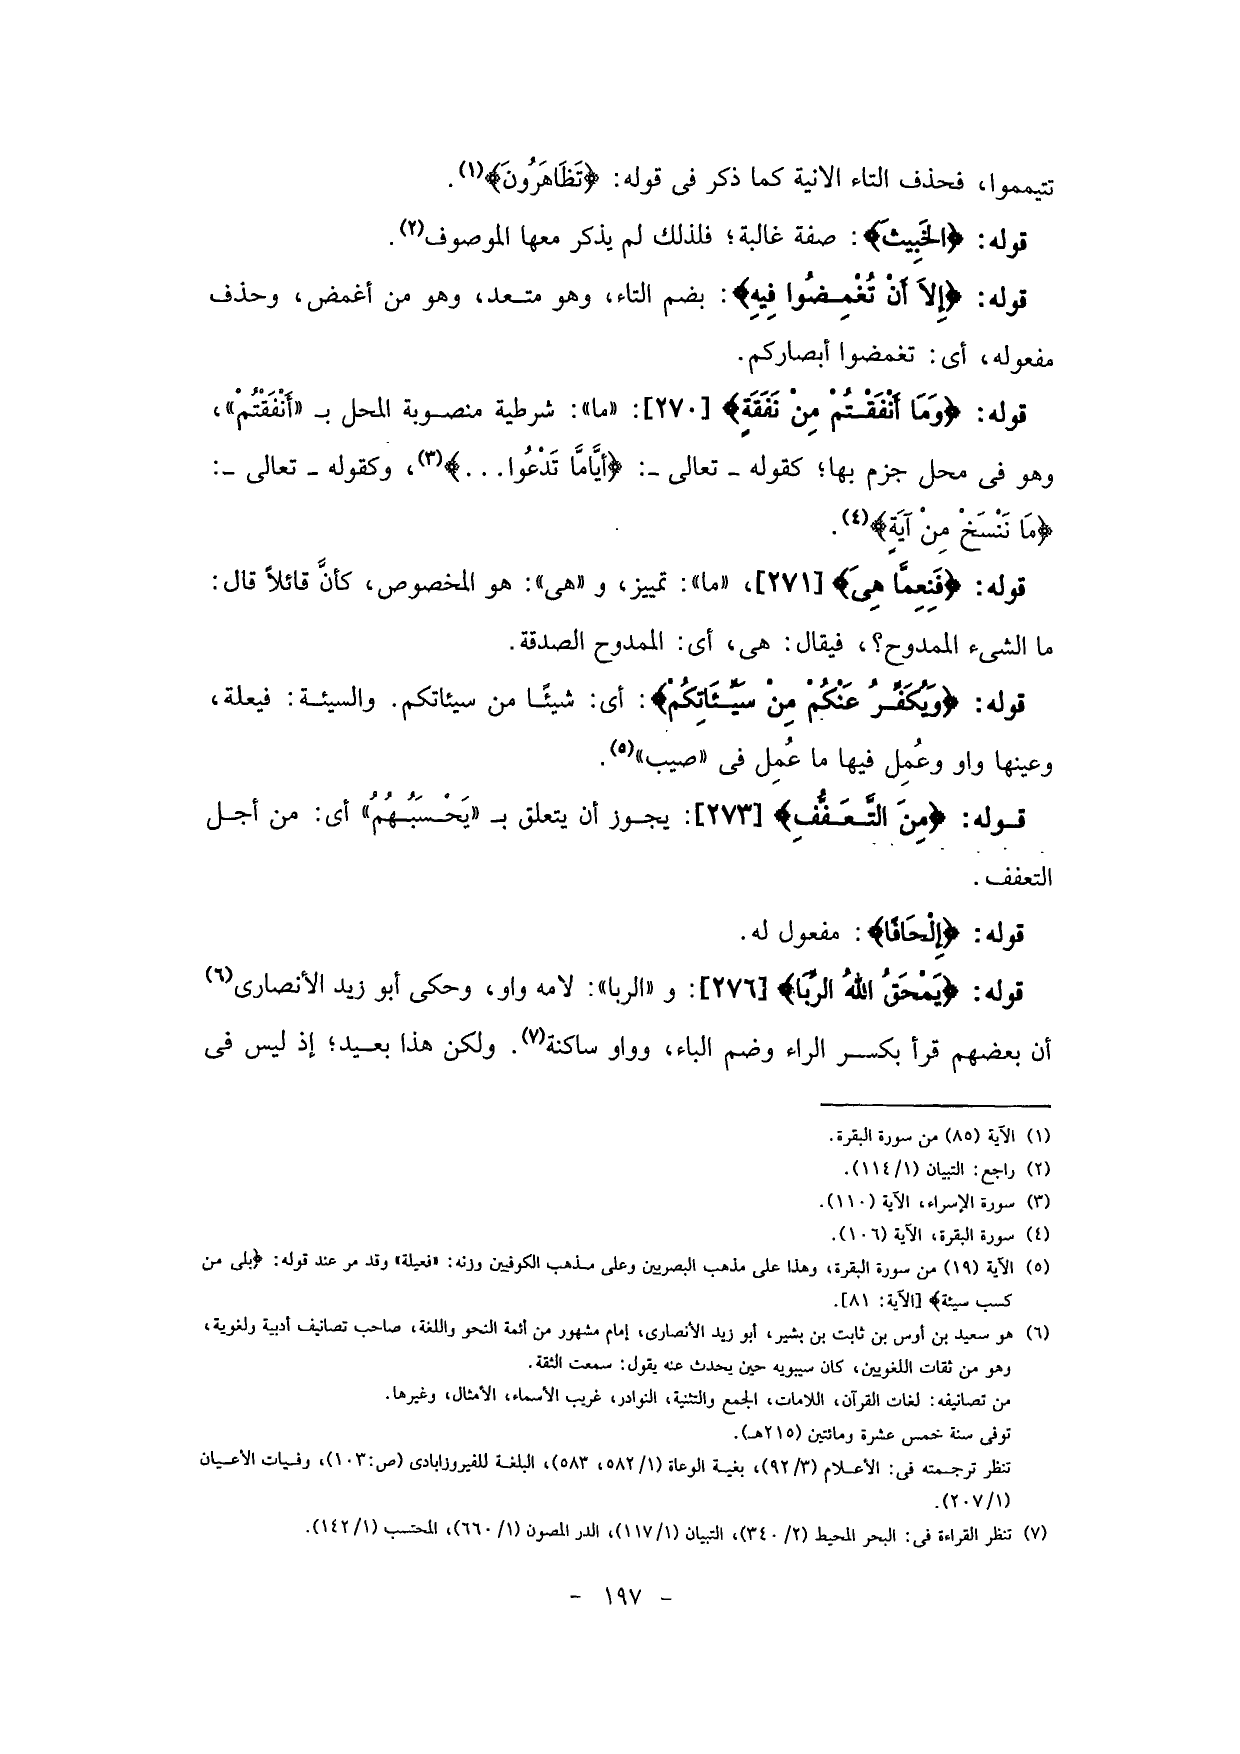 تتيمموا، فحذف التاء الانية كما ذكر فى قوله: ﴿تَظَاهَرُونَ﴾(١).
قوله: ﴿الخَبِيثَ﴾: صفة غالبة؛ فلذلك لم يذكر معها الموصوف(٢).
قوله: ﴿إِلاَّ أَنْ تُغْمِضُوا فِيهِ﴾: بضم التاء، وهو متعد، وهو من أغمض، وحذف
مفعوله، أى: تغمضوا أبصاركم.
قوله: ﴿وَمَا أَنْفَقْتُمْ مِنْ نَفَقَةٍ﴾ [٢٧٠]: «ما»: شرطية منصوبة المحل بـ «أَنْفَقْتُمْ»،
وهو فى محل جزم بها؛ كقوله ـ تعالى ـ: ﴿أَيَّامَّا تَدْعُوا...﴾(٣)، وكقوله ـ تعالى ـ:
﴿مَا نَنْسَخْ مِنْ آيَةٍ﴾(٤).
قوله: ﴿فَنِعِمَّا هِىَ﴾ [٢٧١]، «ما»: تمييز، و «هى»: هو المخصوص، كأنَّ قائلاً قال:
ما الشىء الممدوح؟، فيقال: هى، أى: الممدوح الصدقة.
قوله: ﴿وَيُكَفِّرُ عَنْكُمْ مِنْ سَيِّئَاتِكُمْ﴾: أى: شيئًا من سيئاتكم. والسيئة: فيعلة،
وعينها واو وعُمِل فيها ما عُمِل فى «صيب»(٥).
قوله: ﴿مِنَ التَّعَفُّفِ﴾ [٢٧٣]: يجوز أن يتعلق بـ «يَحْسَبُهُمُ» أى: من أجل
التعفف.
قوله: ﴿إِلْحَافًا﴾: مفعول له.
قوله: ﴿يَمْحَقُ اللهُ الرِّبَا﴾ [٢٧٦]: و «الربا»: لامه واو، وحكى أبو زيد الأنصارى(٦)
أن بعضهم قرأ بكسر الراء وضم الباء، وواو ساكنة(٧). ولكن هذا بعيد؛ إذ ليس فى
(١) الآية (٨٥) من سورة البقرة.
(٢) راجع: التبيان (١/١١٤).
(٣) سورة الإسراء، الآية (١١٠).
(٤) سورة البقرة، الآية (١٠٦).
(٥) الآية (١٩) من سورة البقرة، وهذا على مذهب البصريين وعلى مذهب الكوفيين وزنه: «فعيلة» وقد مر عند قوله: ﴿بلى من
كسب سيئة﴾ [الآية: ٨١].
(٦) هو سعيد بن أوس بن ثابت بن بشير، أبو زيد الأنصارى، إمام مشهور من أئمة النحو واللغة، صاحب تصانيف أدبية ولغوية،
وهو من ثقات اللغويين، كان سيبويه حين يحدث عنه يقول: سمعت الثقة.
من تصانيفه: لغات القرآن، اللامات، الجمع والتثنية، النوادر، غريب الأسماء، الأمثال، وغيرها.
توفى سنة خمس عشرة ومائتين (٢١٥هـ).
تنظر ترجمته فى: الأعلام (٩٢/٣)، بغية الوعاة (١/ ٥٨٢، ٥٨٣)، البلغة للفيروزابادى (ص:١٠٣)، وفيات الأعيان
(٢٠٧/١).
(٧) تنظر القراءة فى: البحر المحيط (٢/ ٣٤٠)، التبيان (١/ ١١٧)، الدر المصون (١/ ٦٦٠)، المحتسب (١/ ١٤٢).
- ١٩٧ -